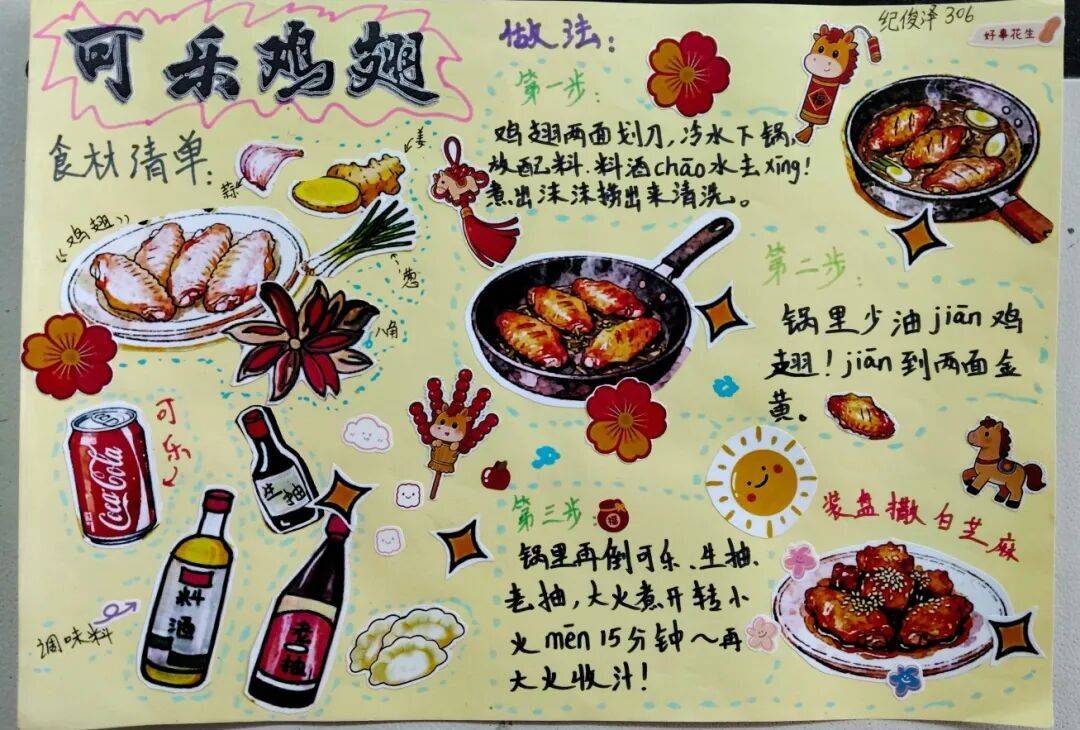 纪俊泽 306
好事花生
可乐鸡翅
食材清单:
蒜
姜
鸡翅
葱
八角
可乐
Coca-Cola
生抽
料酒
老抽
调味料
做法:
第一步:
鸡翅两面划刀,冷水下锅,
放配料.料酒chāo水去xīng!
煮出沫沫捞出来清洗。
第二步:
锅里少油jiān鸡
翅!jiān到两面金
黄。
第三步:
福
锅里再倒可乐、生抽、
老抽,大火煮开转小
火mēn15分钟～再
大火收汁!
装盘撒白芝麻